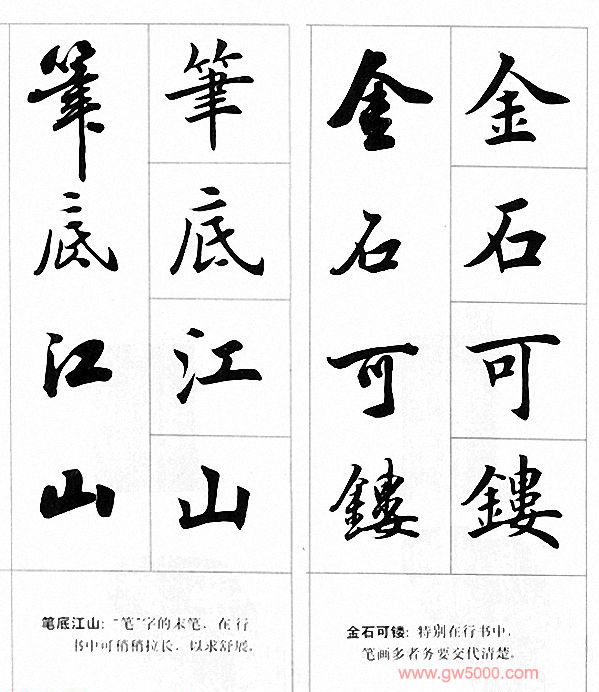 金石可鏤
金石可鏤
筆底江山
筆底江山
金石可镂：特别在行书中，
笔画多者务要交代清楚。
笔底江山：“笔”字的末笔，在行
书中可稍稍拉长，以求舒展。
www.gw5000.com